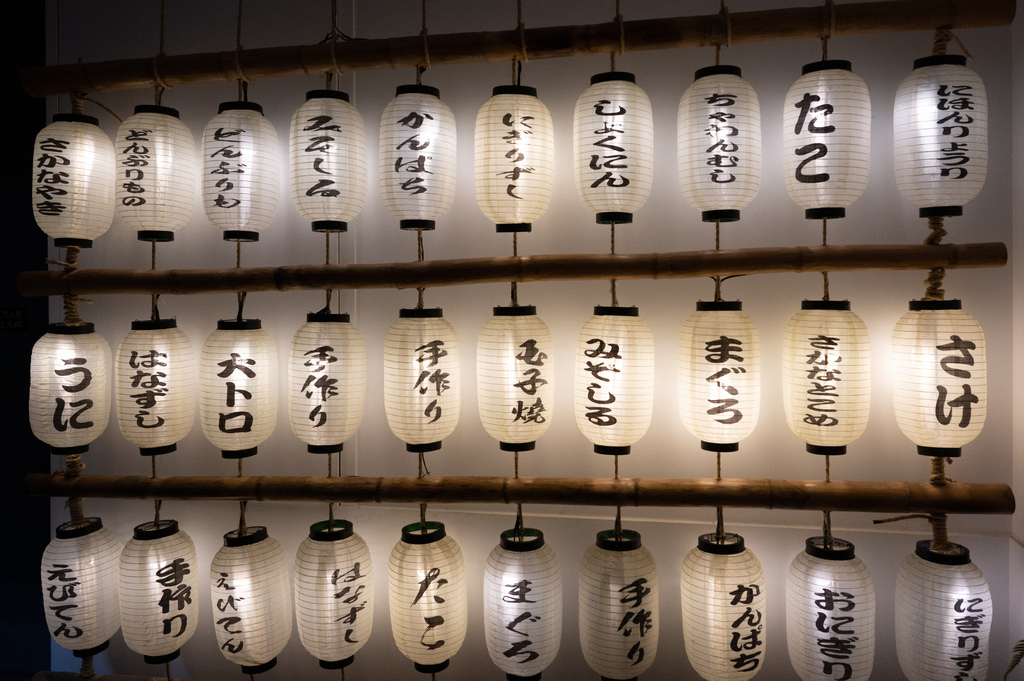 さかなやき
どんぶりもの
どんぶりも
みそしる
かんぱち
にぎりずし
しょくにん
ちゃわんむし
たこ
にほんりょうり
うに
はなずし
大トロ
手作り
手作り
玉子焼
みそしる
まぐろ
さかなとこめ
さけ
えびてん
手作り
えびてん
はなずし
たこ
まぐろ
手作り
かんぱち
おにぎり
にぎりずし